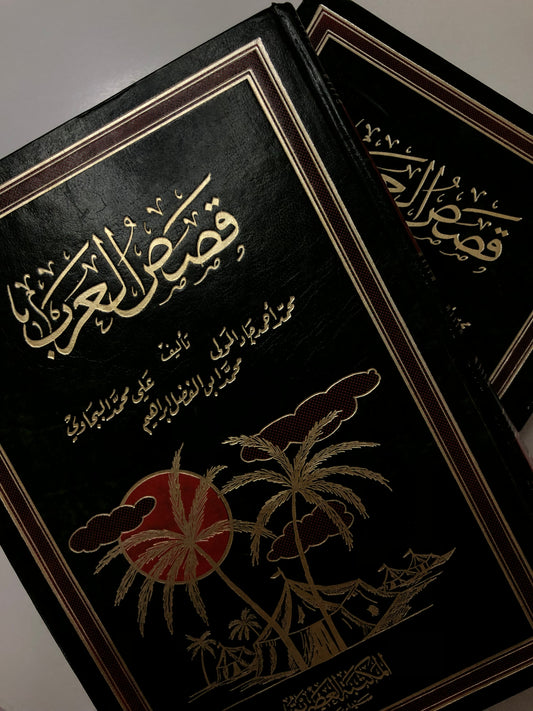 قصص العرب
تأليف
محمد أحمد جاد المولى
علي محمد البجاوي
محمد أبو الفضل إبراهيم
المكتبة العصرية
قصص العرب